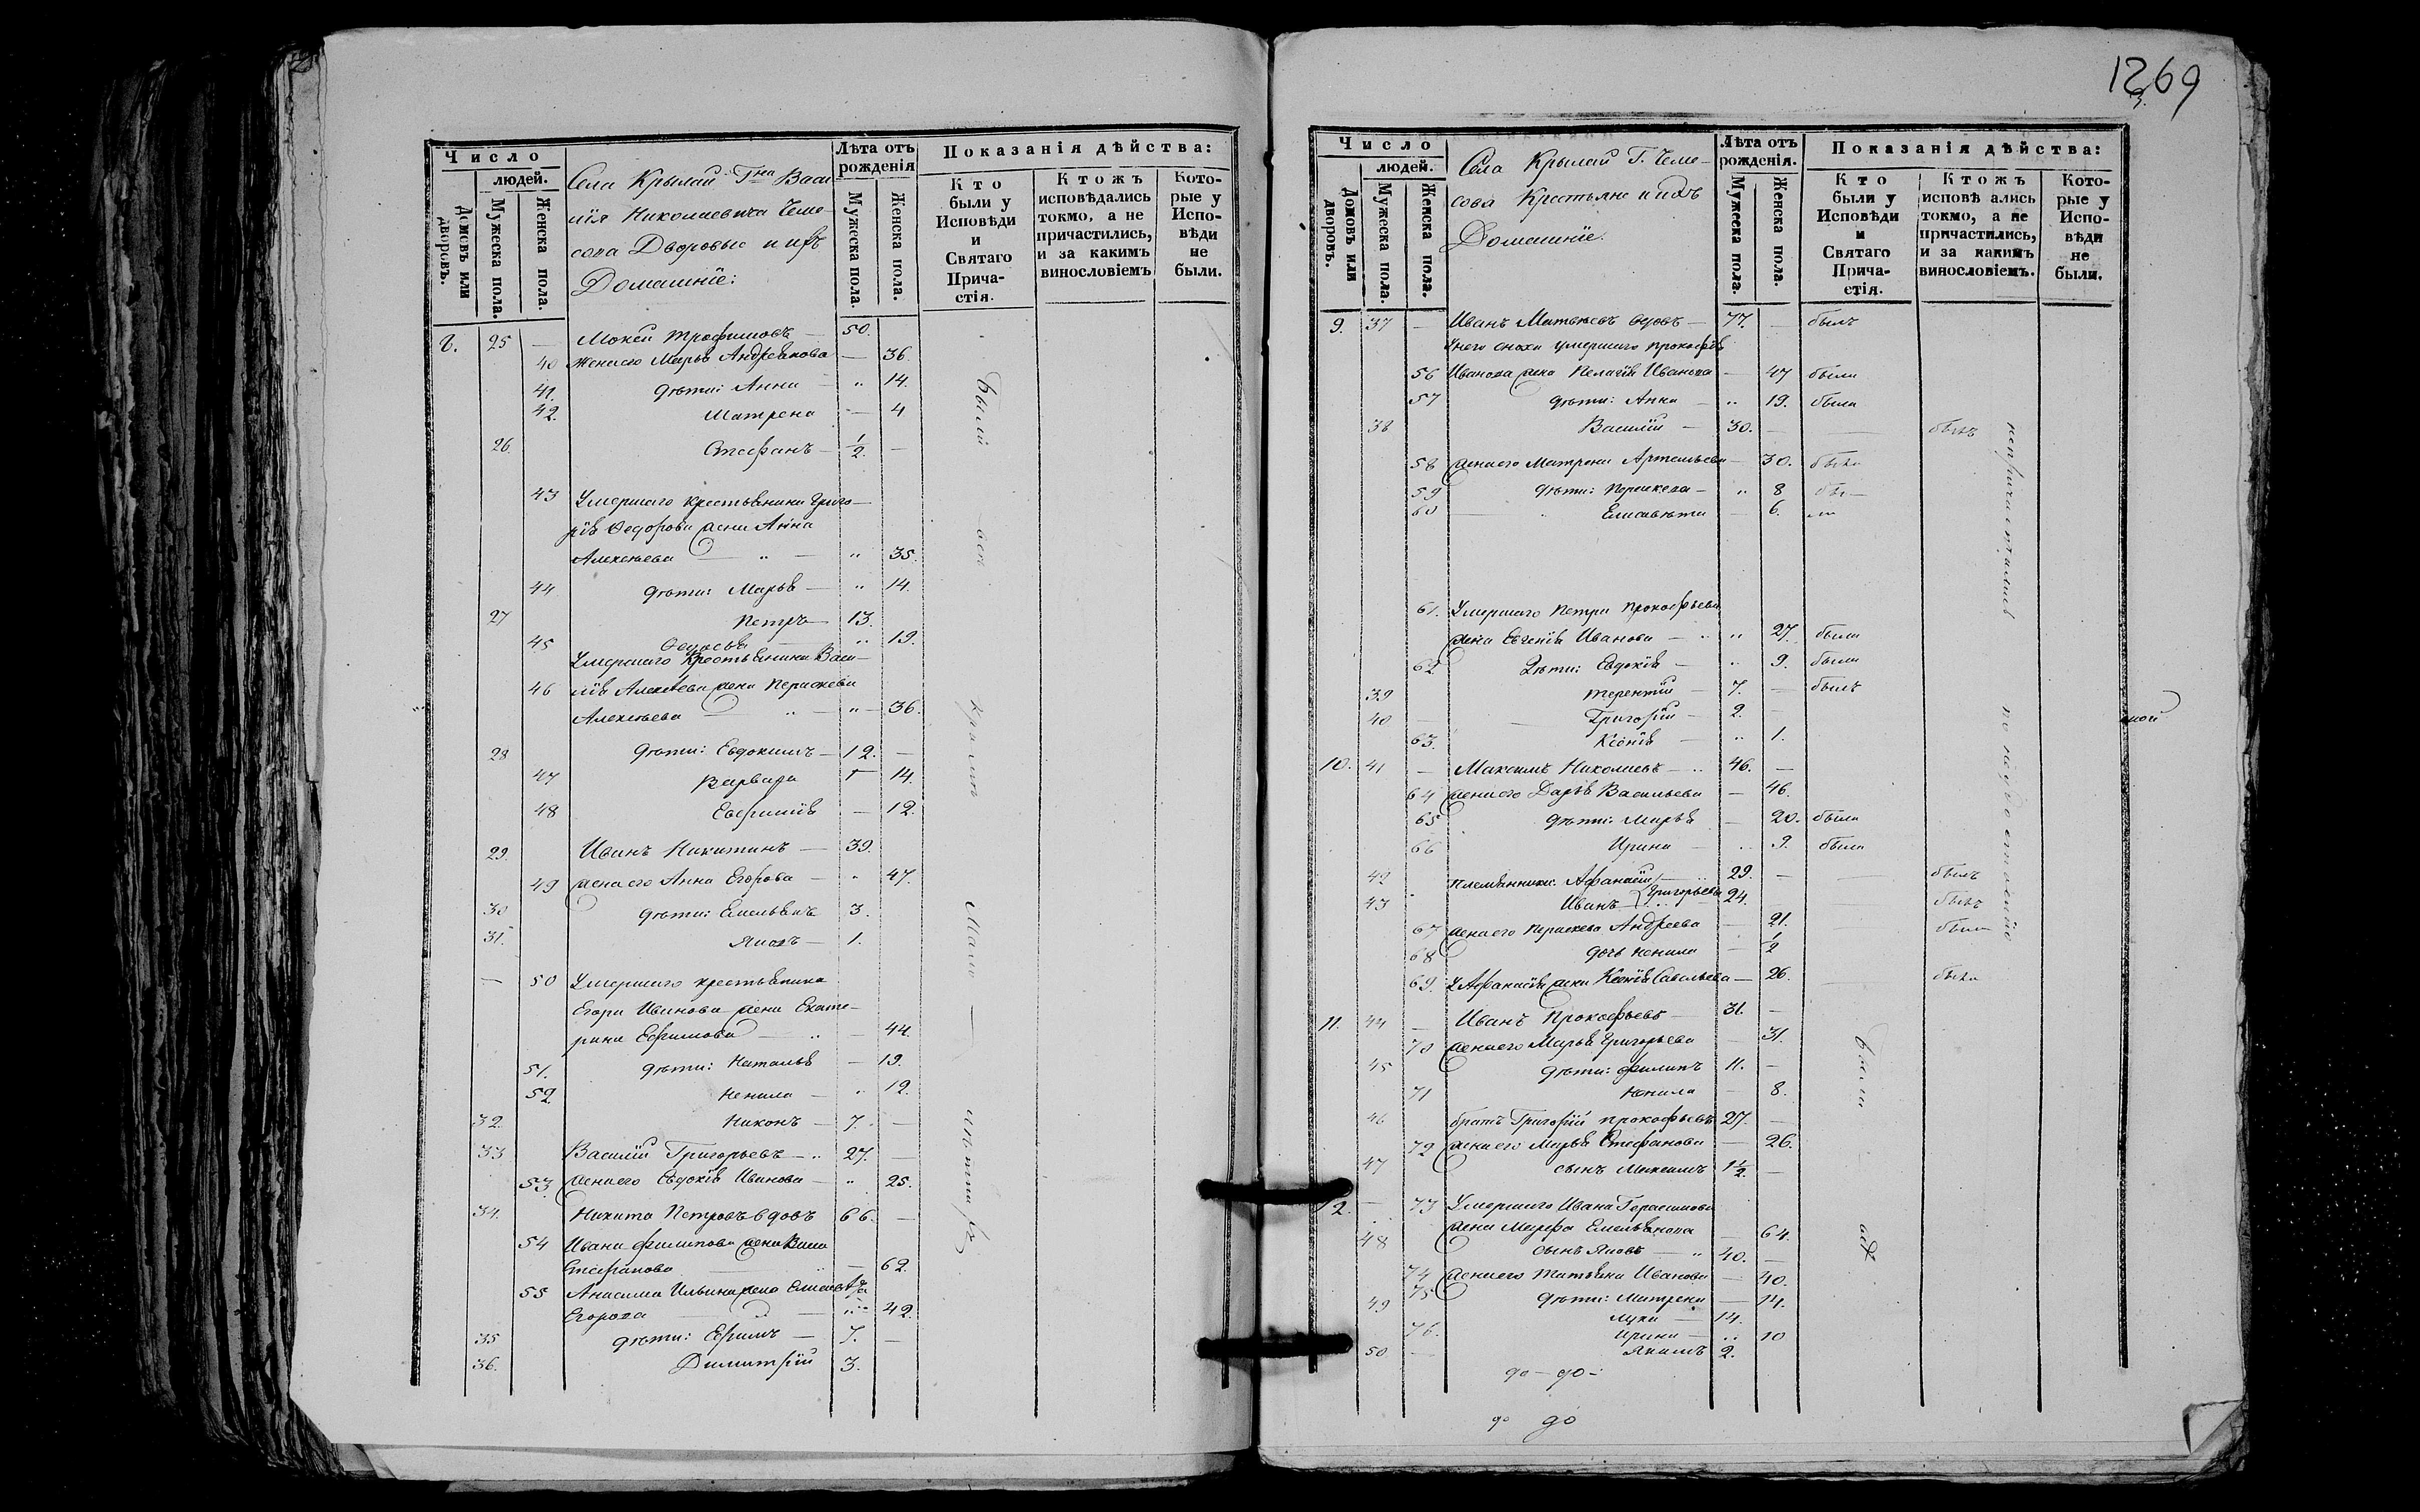 1269
Число
людей.
Домовъ или дворовъ.
Мужеска пола.
Женска пола.
Села Крылай Гна Васи-
лія Николаевича Чеме-
сова Дворовые и ихъ
Домашніе:
Лѣта отъ рожденія
Мужеска пола.
Женска пола.
Показанія дѣйства:
Кто были у Исповѣди и Святаго Прича-стія.
Ктожъ исповѣдались токмо, а не причастились, и за какимъ винословіемъ
Кото-рые у Испо-вѣди не были.
8. 25 — Мокей Трофимовъ — 50.
40 Жена его Марья Андреянова — 36
41. дѣти: Анна — " 14.
42. Матрена — 4
26. Стефанъ — 1/2. —
43 Умершаго крестьянина Григо-
рія Федорова жена Анна
Алексѣева — " — " 35.
44 дѣти: Марья — " 14.
27 Петръ — 13.
45 " 19.
Умершаго Крестьянина Васи-
46 лія Алексѣева жена Параскева
Алексѣева " — " — 36.
28 дѣти: Евдокимъ — 12. —
47 Варвара 14.
48 Евфимія — 12.
29. Иванъ Никитинъ — 39.
49 жена его Анна Егорова — " 47.
30 дѣти: Емельянъ 3.
31. Яковъ — 1.
— 50 Умершаго крестьянина
Егора Иванова жена Екате-
рина Ефимова — " — 44.
51. дѣти: Наталья — 19.
52. Ненила — " 12.
32. Никонъ — 7. —
33 Василій Григорьевъ — " 27. —
53. жена его Евдокія Иванова — " 25.
34. Никита Петровъ вдовъ 66. —
54 Ивана Филипова жена
Стефанова — 62.
55 Анасима Ильина жена
Егорова " — 42.
35 дѣти: Ефимъ — 7. —
36. Димитрій 3.
были
Число
людей.
Домовъ или дворовъ.
Мужеска пола.
Женска пола.
Села Крылай Г. Чеме-
сова Крестьяне и ихъ
Домашніе.
Лѣта отъ рожденія.
Мужеска пола.
Женска пола.
Показанія дѣйства:
Кто были у Исповѣди и Святаго Прича-стія.
Ктожъ исповѣ ались токмо, а не причастились, и за какимъ винословіемъ.
Кото-рые у Испо-вѣди не были.
9. 37 — Иванъ Матвѣевъ вдовъ — 77. — былъ
У него сноха умершаго Прокофія
56 Иванова жена Пелагія Иванова — 47 была
57 дѣти: Анна — " 19. была
38 Василій — 30. — — былъ
58 жена его Матрена Артемьева — 30. была
59 дѣти: Параскева — " 8
60 Елисавета — 6.
61. Умершаго Петра Прокофьева
жена Евгенія Иванова — " " 27. была
62 Дѣти: Евдокія — " 9. была
39 Терентій — 7. — былъ
40 — Григорій — 2. —
63. Ксенія — " 1.
10. 41 — Максимъ Николаевъ — " 46. —
64 жена его Дарья Васильева — 46.
65 дѣти: Марья — 20. была
66 Ирина — " 9. была
42 племянники: Афанасій — 29. — — былъ
Григорьевы
43 Иванъ 24. — былъ
67 жена его Параскева Андреева — 21. — была
68 дочь Ненила — 1/2
69. У Афанасія жена Ксенія Савельева — 26. — была
11. 44 — Иванъ Прокофьевъ — 31. —
70 жена его Марья Григорьева — 31.
45 дѣти: Филипъ 11. —
71 Ненила — 8.
46 братъ Григорій Прокофьевъ 27. —
72 жена его Марья Стефанова — 26.
47 сынъ Максимъ 1 1/2. —
12. — 73 Умершаго Ивана Герасимова
жена Марфа Емельянова — 64.
48 сынъ Яковъ — " 40. —
74 жена его Татьяна Иванова — 40.
75 дѣти: Матрена — 14.
49 Лука — 14.
76. Ирина — " 10
50 — Якимъ 2.
непричастились по недостоинію